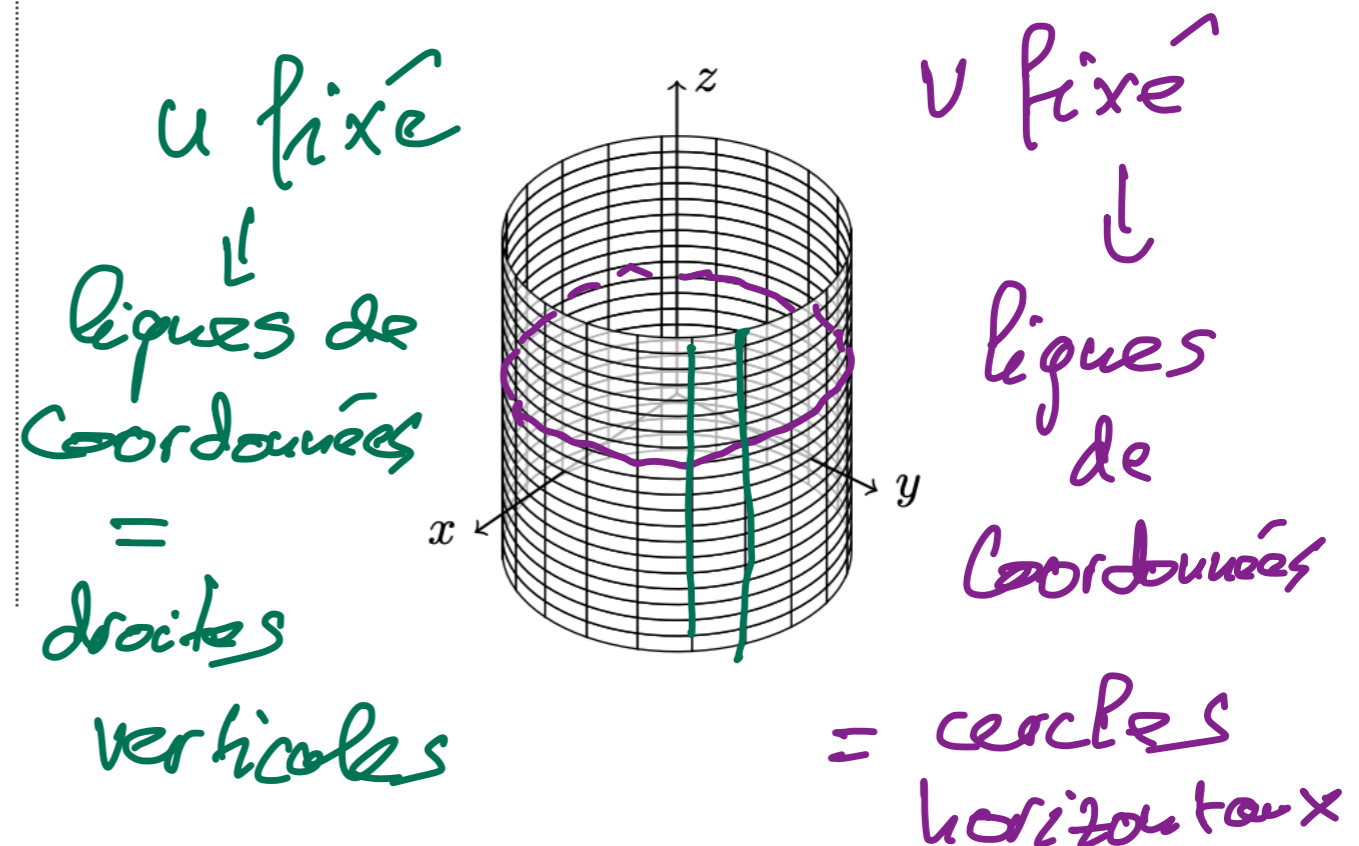 u fixé
↓
lignes de
coordonnées
=
droites
verticales
z
x
y
v fixé
↓
lignes
de
coordonnées
= cercles
horizontaux